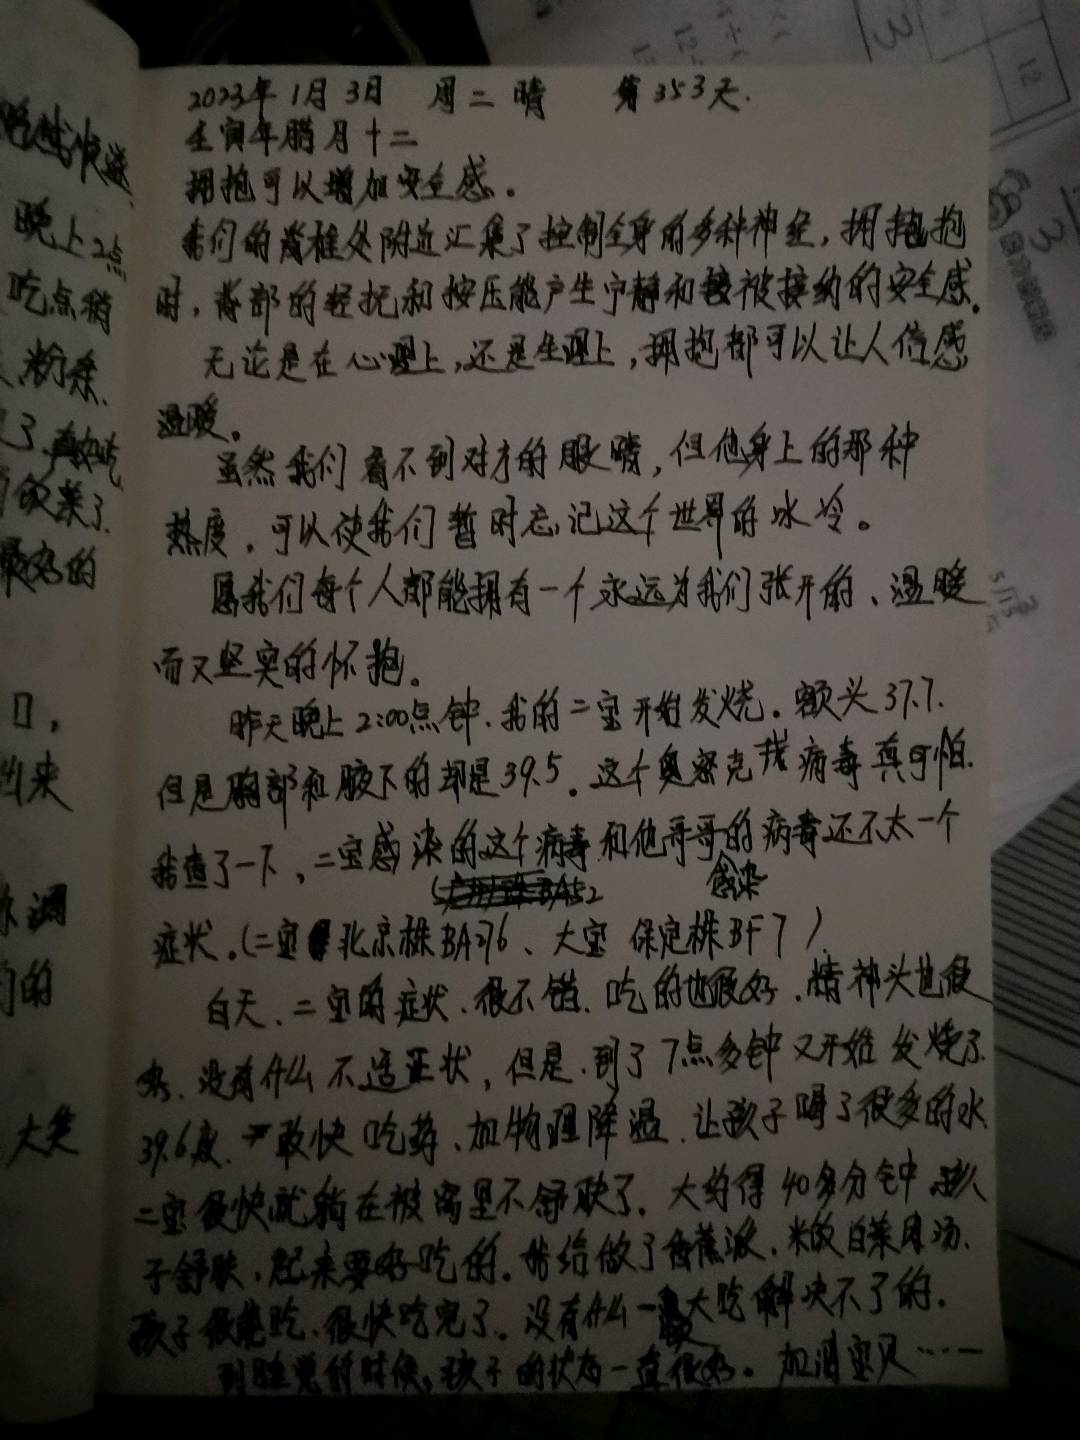 2023年1月3日 周二 晴 第353天.
壬寅年腊月十二
拥抱可以增加安全感。
我们的脊柱处附近汇集了控制全身的多种神经,拥抱
时,背部的轻抚和按压能产生宁静和被接纳的安全感。
无论是在心理上,还是生理上,拥抱都可以让人倍感
温暖。
虽然我们看不到对方的眼睛,但他身上的那种
热度,可以使我们暂时忘记这个世界的冰冷。
愿我们每个人都能拥有一个永远为我们张开的、温暖
而又坚实的怀抱。
昨天晚上2:00点钟.我的二宝开始发烧。额头37.7.
但是胸部和腋下的却是39.5。这个奥密克戎病毒真可怕.
我查了一下,二宝感染的这个病毒和他哥哥的病毒还不太一个
感染
症状.(二宝 北京株BA276、大宝 保定株BF7)
白天、二宝的症状.很不错.吃的也很好.精神头也很
来.没有什么不适症状,但是.到了7点多钟又开始发烧了.
39.6度.敢快吃药、加物理降温.让孩子喝了很多的水
二宝很快就躺在被窝里不舒耿了.大约得40多分钟.孩
子舒耿,起来要好吃的。我给做了香蕉派.米饭白菜肉汤.
孩子很能吃.很快吃完了。没有什么一大吃解决不了的.
到睡觉的时候,孩子的状态一直很好。加油宝贝……
晚上2点
吃点稍
最好的
出来
的
大笑
12
3
3